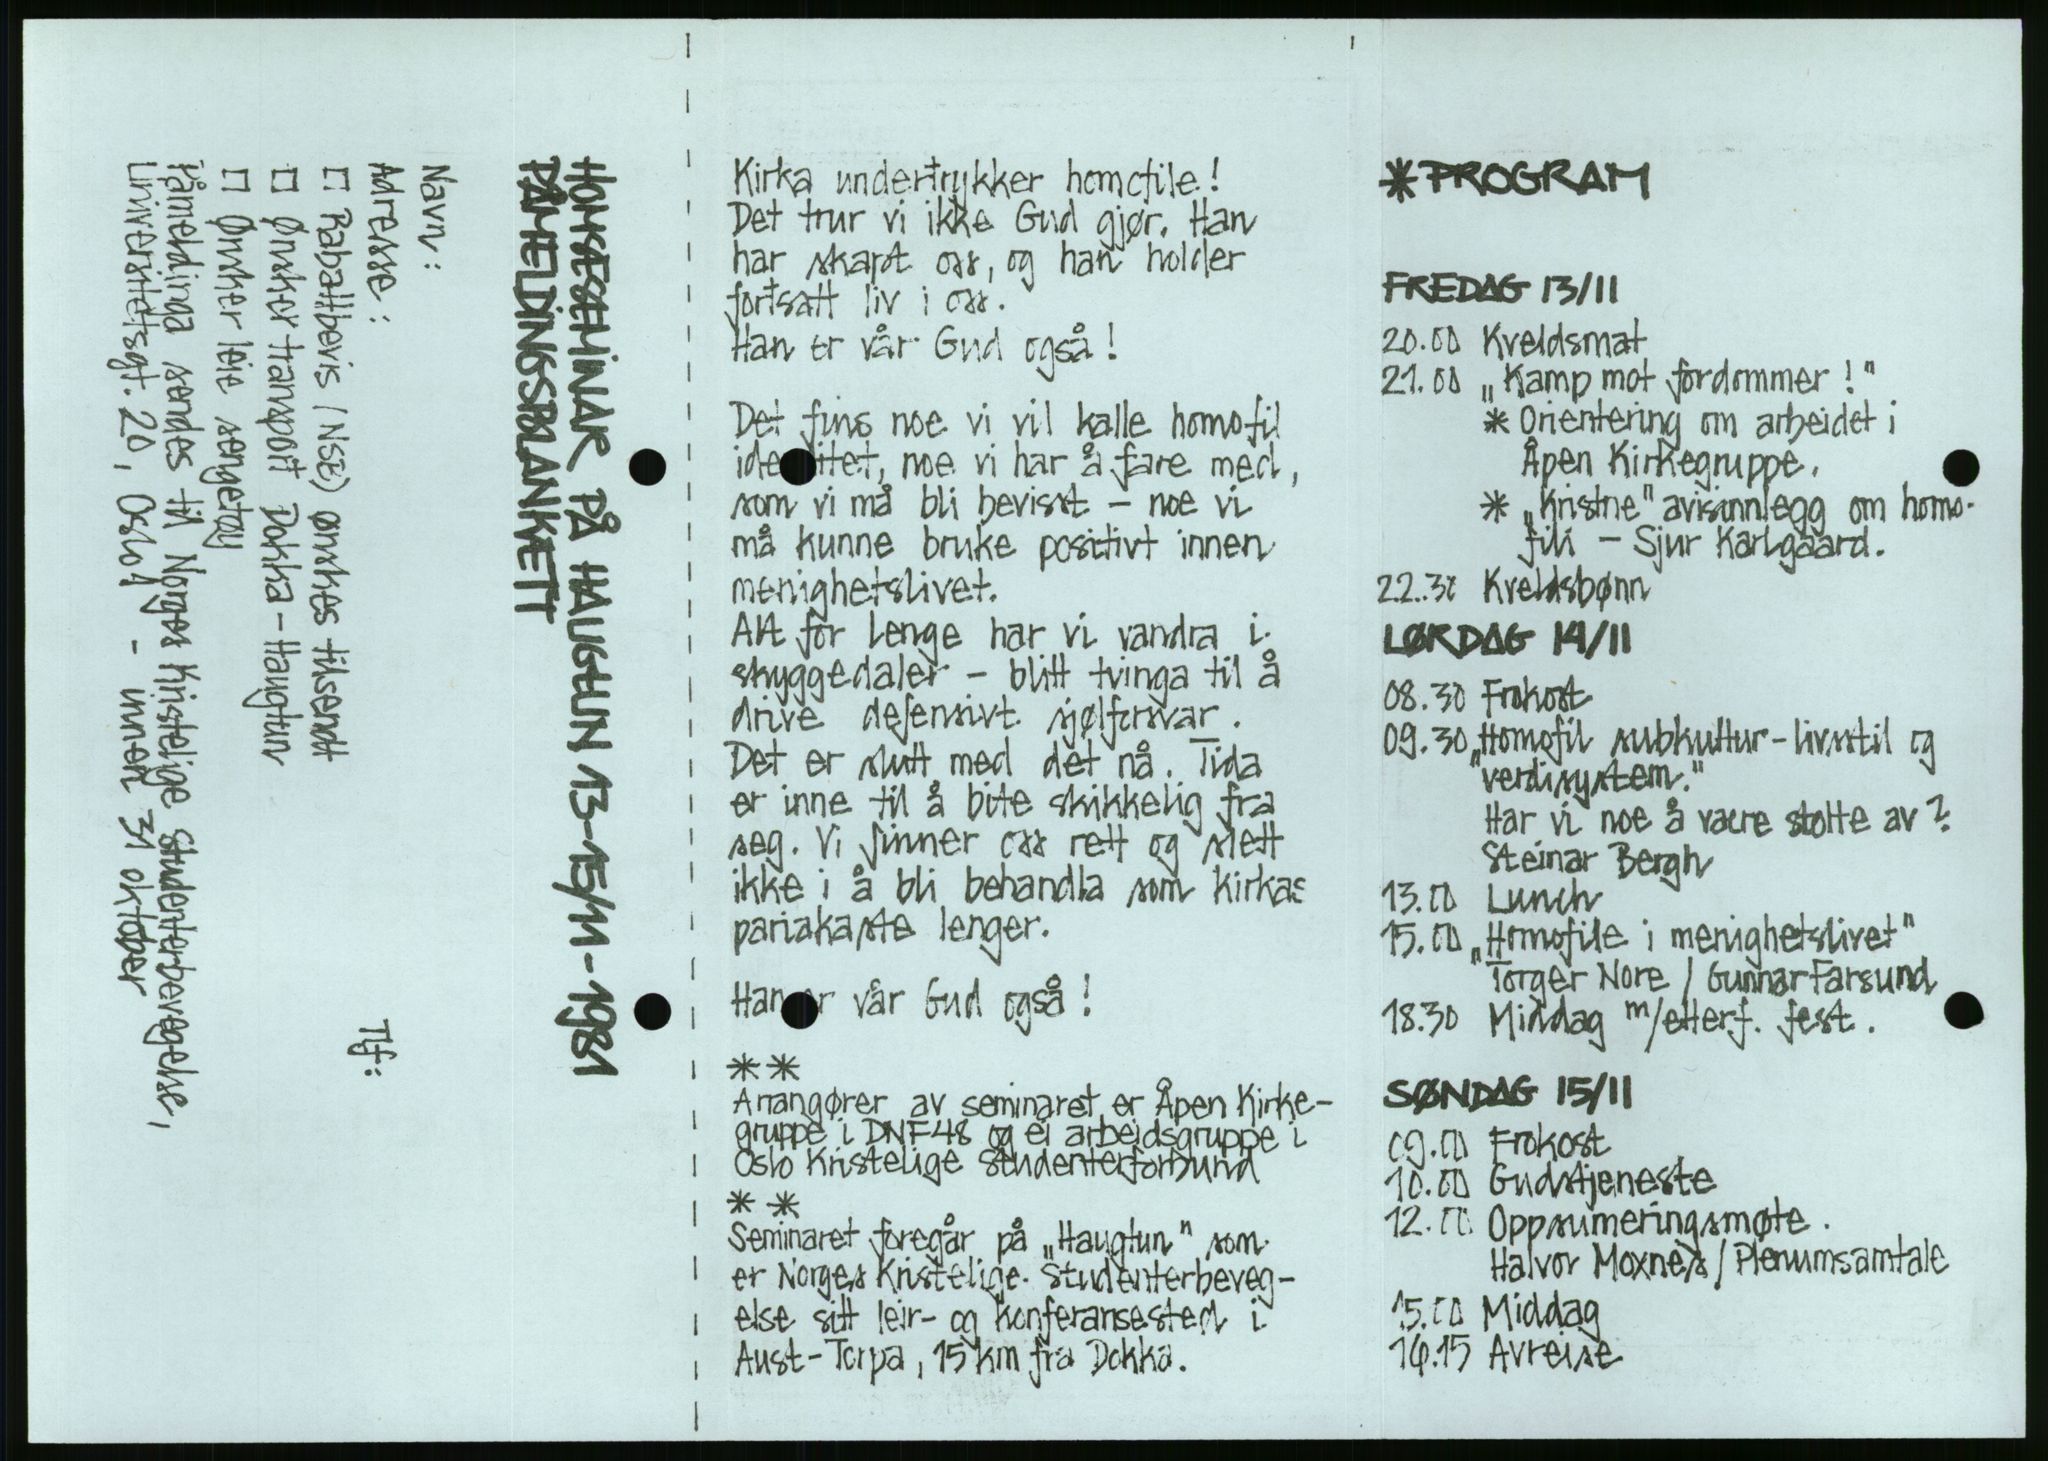 HOMSESEMINAR PÅ HAUGTUN 13-15/11-1981
PÅMELDINGSBLANKETT
Navn:
Adresse:
Tlf:
□ Rabattbevis (NSB) ønskes tilsendt
□ Ønsker transport Dokka-Haugtun
□ Ønsker leie sengetøy
Påmeldinga sendes til Norges Kristelige Studenterbevegelse,
Universitetsgt. 20, Oslo 1 - innen 31 oktober
Kirka undertrykker homofile!
Det trur vi ikke Gud gjør. Han
har skapt oss, og han holder
fortsatt liv i oss.
Han er vår Gud også!
Det fins noe vi vil kalle homofil
identitet, noe vi har å fare med,
som vi må bli bevisst - noe vi
må kunne bruke positivt innen
menighetslivet.
Alt for lenge har vi vandra i
skyggedaler - blitt tvinga til å
drive defensivt sjølforsvar.
Det er slutt med det nå. Tida
er inne til å bite skikkelig fra
seg. Vi finner oss rett og slett
ikke i å bli behandla som kirkas
pariakaste lenger.
Han er vår Gud også!
* *
Arrangører av seminaret er Åpen Kirke-
gruppe i DNF48 og ei arbeidsgruppe i
Oslo Kristelige Studenterforbund
* *
Seminaret foregår på „Haugtun" som
er Norges Kristelige Studenterbeveg-
else sitt leir- og konferansested i
Aust-Torpa, 15 km fra Dokka.
* PROGRAM
FREDAG 13/11
20.00 Kveldsmat
21.00 „Kamp mot fordommer!"
* Orientering om arbeidet i
Åpen Kirkegruppe.
* „Kristne" avisinnlegg om homo-
fili - Sjur Karlgaard.
22.30 Kveldsbønn
LØRDAG 14/11
08.30 Frokost
09.30 „Homofil subkultur-livsstil og
verdisystem."
Har vi noe å være stolte av?
Steinar Bergh
13.00 Lunch
15.00 „Homofile i menighetslivet"
Torger Nore / Gunnar Farsund
18.30 Middag m/etterf. fest.
SØNDAG 15/11
09.00 Frokost
10.00 Gudstjeneste
12.00 Oppsumeringsmøte.
Halvor Moxnes / Plenumsamtale
15.00 Middag
16.15 Avreise